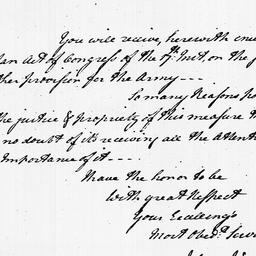 You will receive, herewith encl
an Act of Congress of the 7th Inst, on the
ther provision for the Army ---
So many Reasons po
the justice & propriety of this measure th
no doubt of its receiving all the Attenti
Importance of it ---
I have the honor to be
With great Respect
Your Excellency's
Most Obedt. Serv